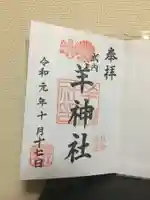 奉拝
式内
羊神社
令和元年十月十七日